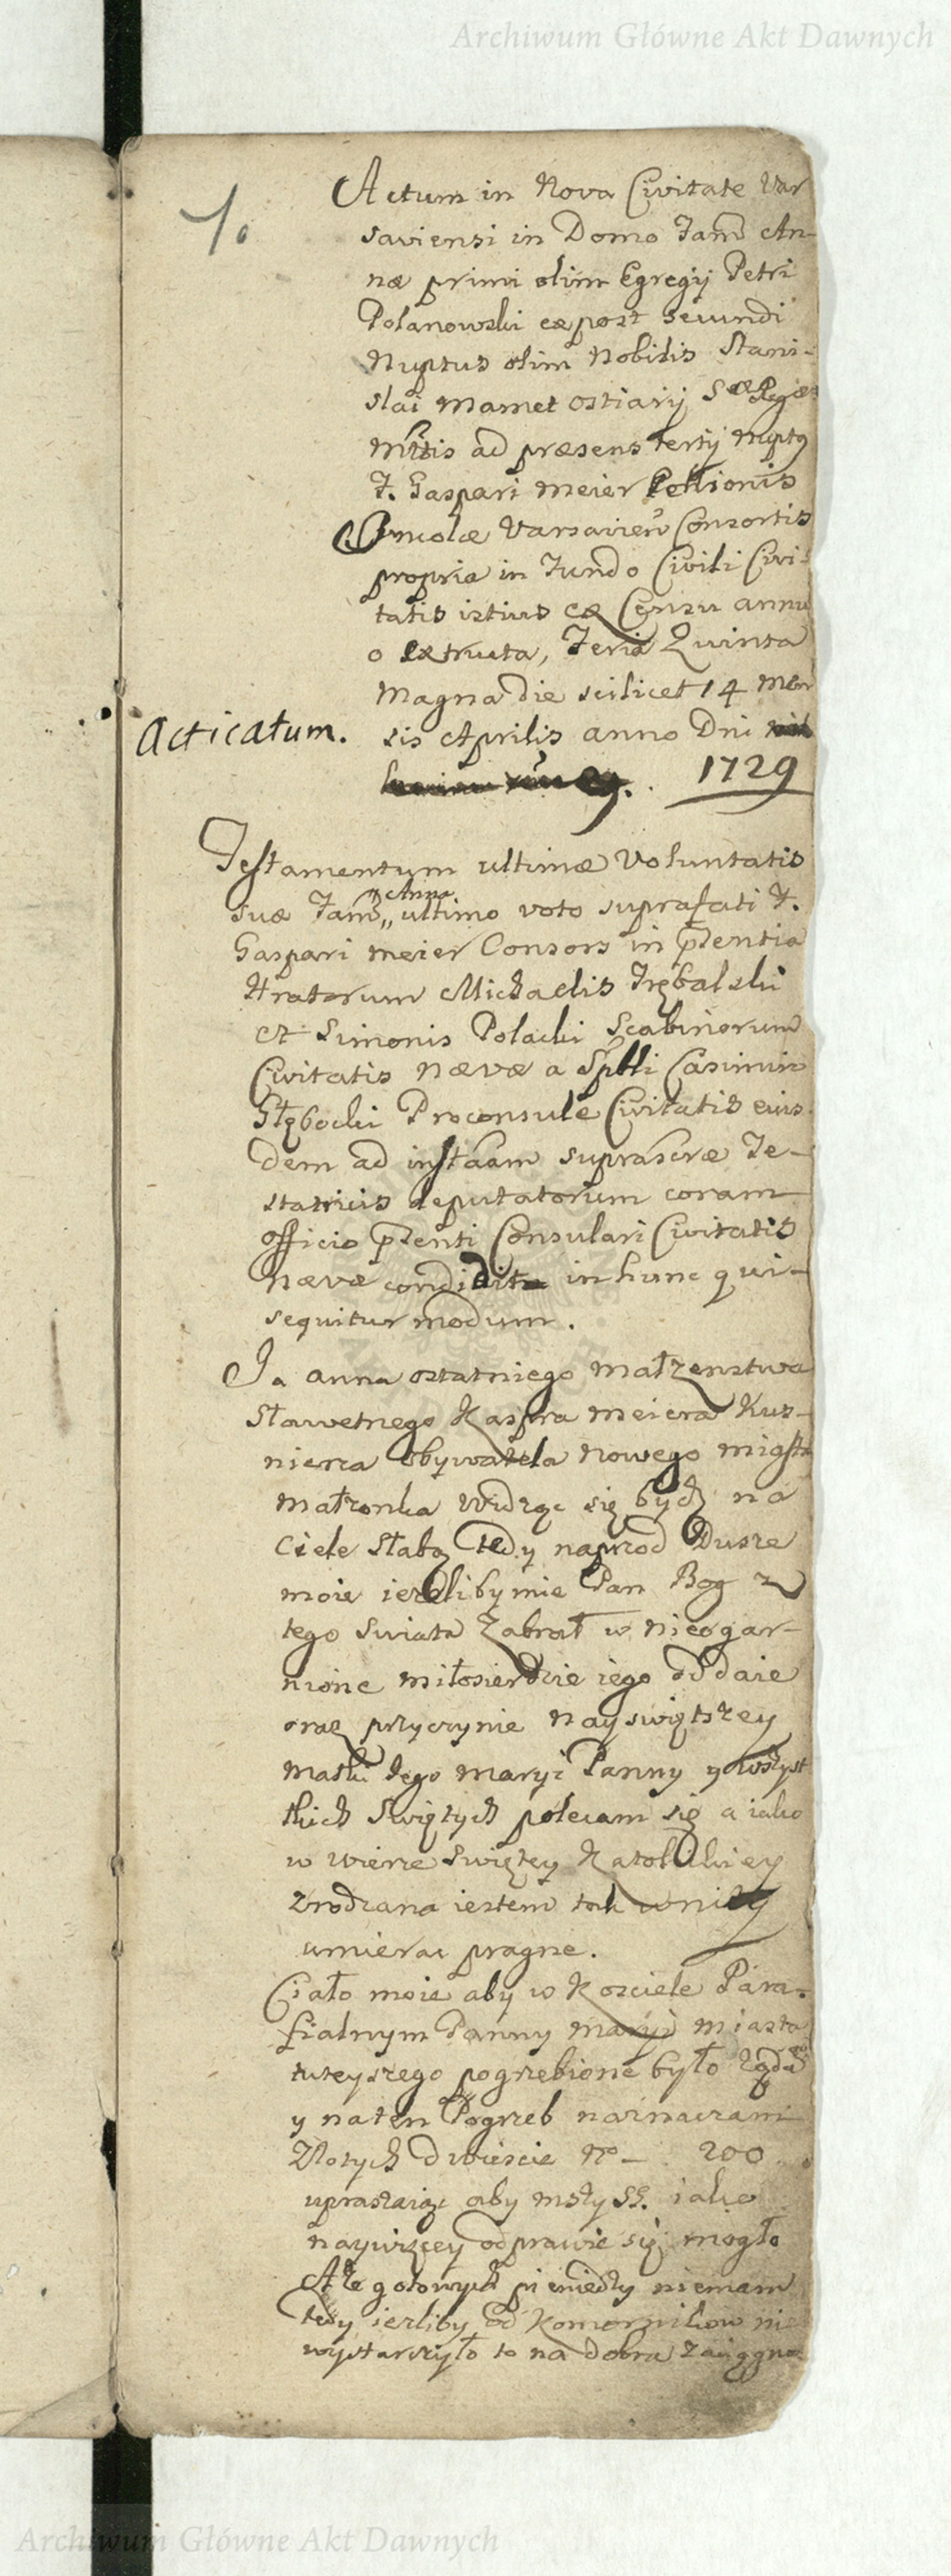 Archiwum Główne Akt Dawnych
Actum in Nova Civitate Var
saviensi in Domo Fam̃ An-
næ primi olim Egregij Petri
Polanowski expost secundi
Nuptus olim Nobilis Stani-
slai Mamet Ostiarij Sæ Regæ
Mttis ad præsens tertij nupty
F. Gaspari Meier Pellionis
Incolæ Varsavien̄ Consortis
propria in Fundo Civili Civi-
tatis istius ex Censu annu
o extructa, Feria Quinta
Magna die scilicet 14 Men
Acticatum.
sis Aprilis anno Dni
1729
Testamentum ultimæ Voluntatis
suæ Fam̃ „ Anna ultimo voto suprafati F.
Gaspari Meier Consors in p̃sentia
Hratorum Michaelis Trębalski
et Simonis Polacki Scabinorum
Civitatis Novæ a Spttli Casimiro
Głębocki Proconsule Civitatis eius
dem ad instaãm suprascræ Te-
statricis deputatorum coram
officio p̃senti Consulari Civitatis
Novæ condidit in hunc qui-
sequitur modum.
Ja Anna ostatniego małzenstwa
Sławetnego Kaspra Meiera Kus-
nierza obywatela Nowego Miasta
Małzonka widząc się bydz na
Ciele słabą tedy naprzod Dusze
moie iezeliby mie Pan Bog z
tego swiata zabrał w nieogar-
nione miłosierdzie iego oddaie
oraz przyczynie Nayswiętszey
Matki Jego Maryi Panny y wszyst
tkich Swiętych polecam się a iako
w wierze swiętey Katolickiey
zrodzana iestem tak w niey
umierac pragne.
Ciało moie aby w Kosciele Para-
fialnym Panny Maryi Miasta
tuteyszego pogrzebione było ządam
y na ten Pogrzeb naznaczam
Złotych dwiescie No — 200
upraszaiąc aby mszy SS. iako
naywięcey odprawic się mogło
Ale gotowych pieniedzy niemam
tedy iezliby od Komornikow nie
wystarczyło to na dobra zaciągno
Archiwum Główne Akt Dawnych